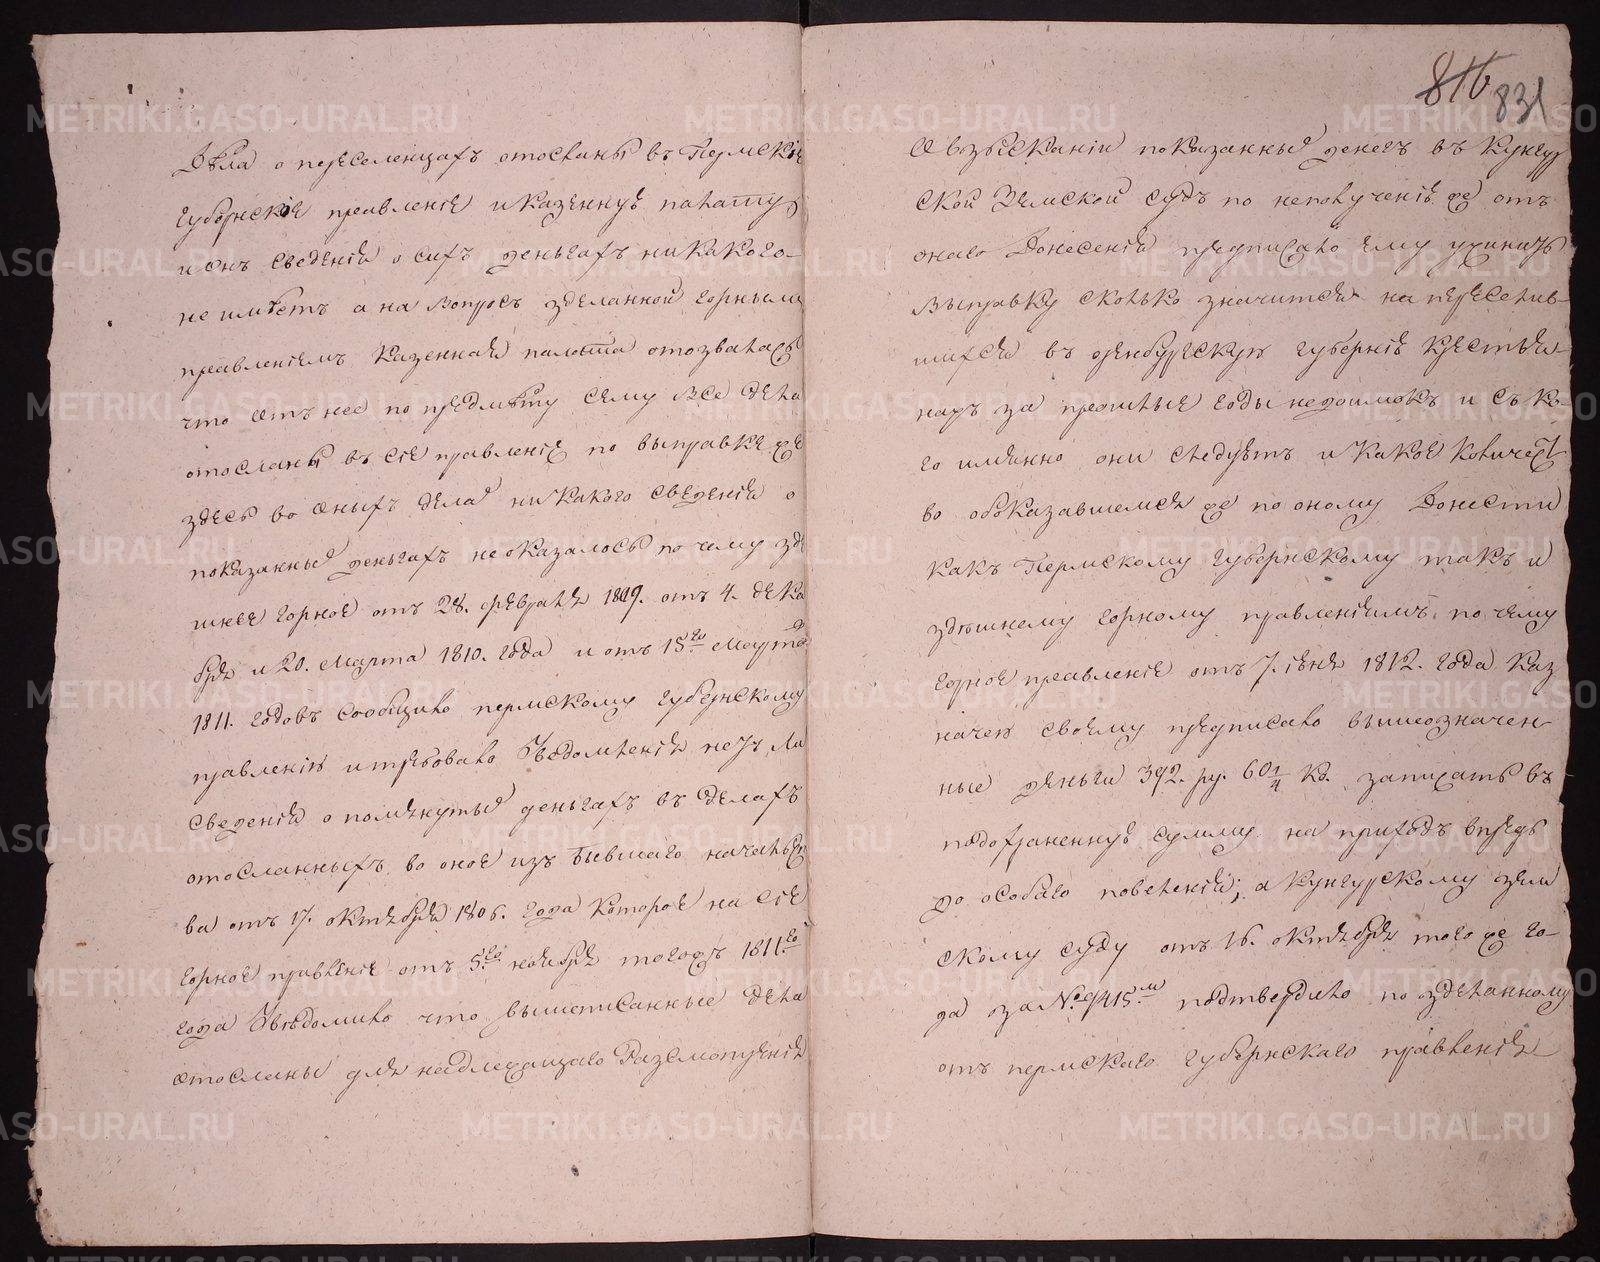 Дѣла о переселенцахъ отосланы въ Пермское
губернское правленіе и казенную палату
и онъ сведенія о сихъ деньгахъ никакого
не имѣетъ а на вопросъ зделанной горнымъ
правленіемъ казенная палата отозвалась
что отъ нее по предмѣту сему все дела
отосланы въ сіе правленіе по выправке же
здесь во оныхъ дела никакого сведенія о
показанные деньгахъ не оказалось по чему зде
шнее горное отъ 28. февраля 1809. отъ 4. дека
бря и 20. марта 1810. года и отъ 15го марта
1811. годовъ сообщило пермскому губернскому
правленію и требовало Уведомленія нетъ ли
сведенія о помянутые деньгахъ въ делахъ
отосланныхъ во оное изъ бывшаго начальст
ва отъ 17. октября 1806. года которое на сіе
горное правленіе отъ 5го ноября того жъ 1811го
года Уведомило что вышеписанные дела
отосланы для надлежащаго Разсмотренія
816 831
О взысканіи показанные денегъ въ Кунгур
ской Земской судъ по неполученіе же отъ
онаго Донесенія предписало ему учинить
выправку сколько значится на переселив
шихся въ оренбургскую губернію крестья
нахъ за прошлые годы недоимокъ и съ ко
го именно они следуетъ и какое количест
во о оказавшемся же по оному Донести
какъ Пермскому губернскому такъ и
здешнему горному правленіямъ по чему
горное правленіе отъ 7. іюня 1812. года каз
начею своему предписало вышеозначен
ные деньги 392. ру. 60 1/4 ко. записать въ
подохраненную сумму на приходъ впредь
до особаго повеленія; а Кунгурскому зем
скому суду отъ 16. октября того же го-
да за №. 9415.мъ подтвердило по зделанному
отъ пермскаго губернскаго правленія